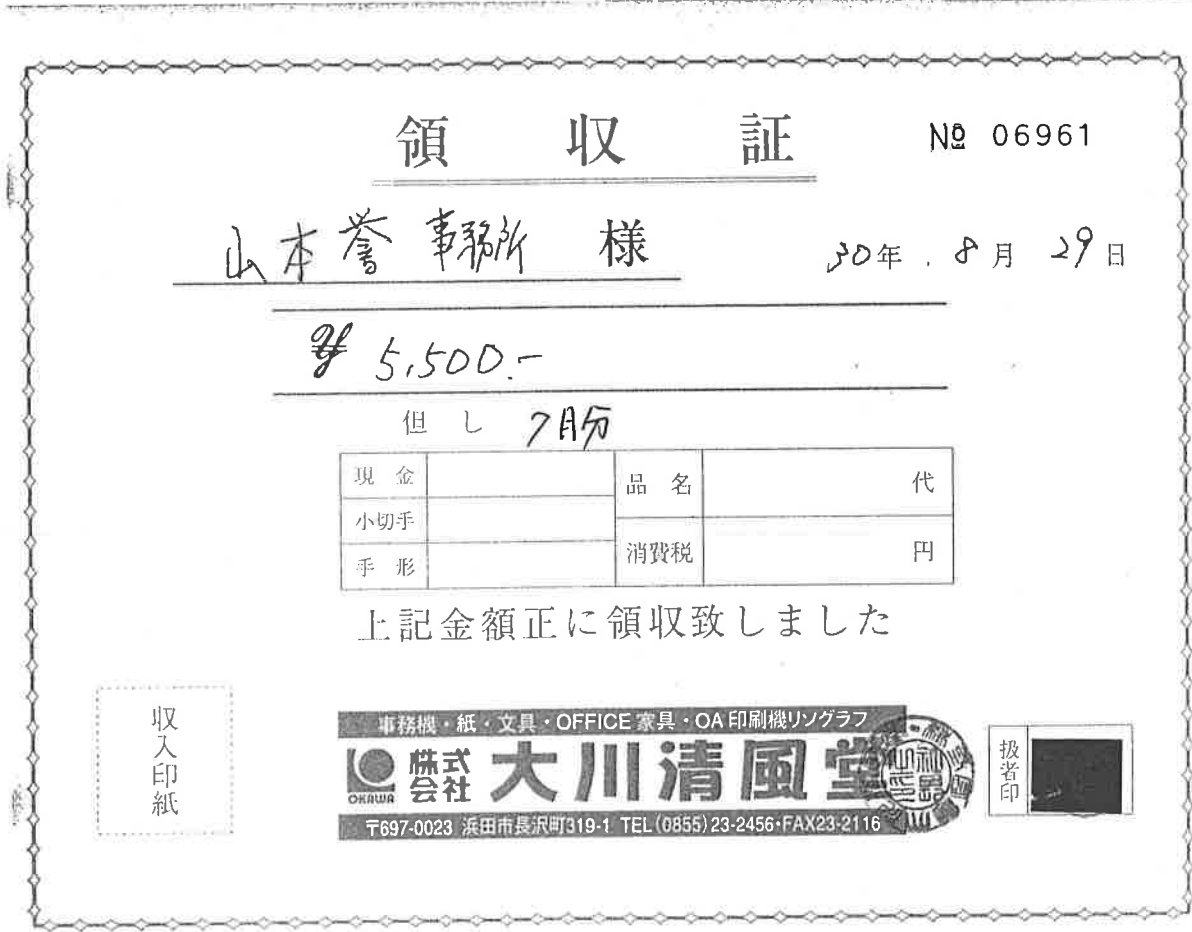 領収証
№ 06961
山本誉事務所 様
30年.8月29日
¥ 5,500.-
但し 7月分
現金
品名 代
小切手
消費税 円
手形
上記金額正に領収致しました
収入印紙
事務機・紙・文具・OFFICE家具・OA印刷機リソグラフ
OKAWA
株式会社 大川清風堂
〒697-0023 浜田市長沢町319-1 TEL(0855)23-2456・FAX23-2116
扱者印